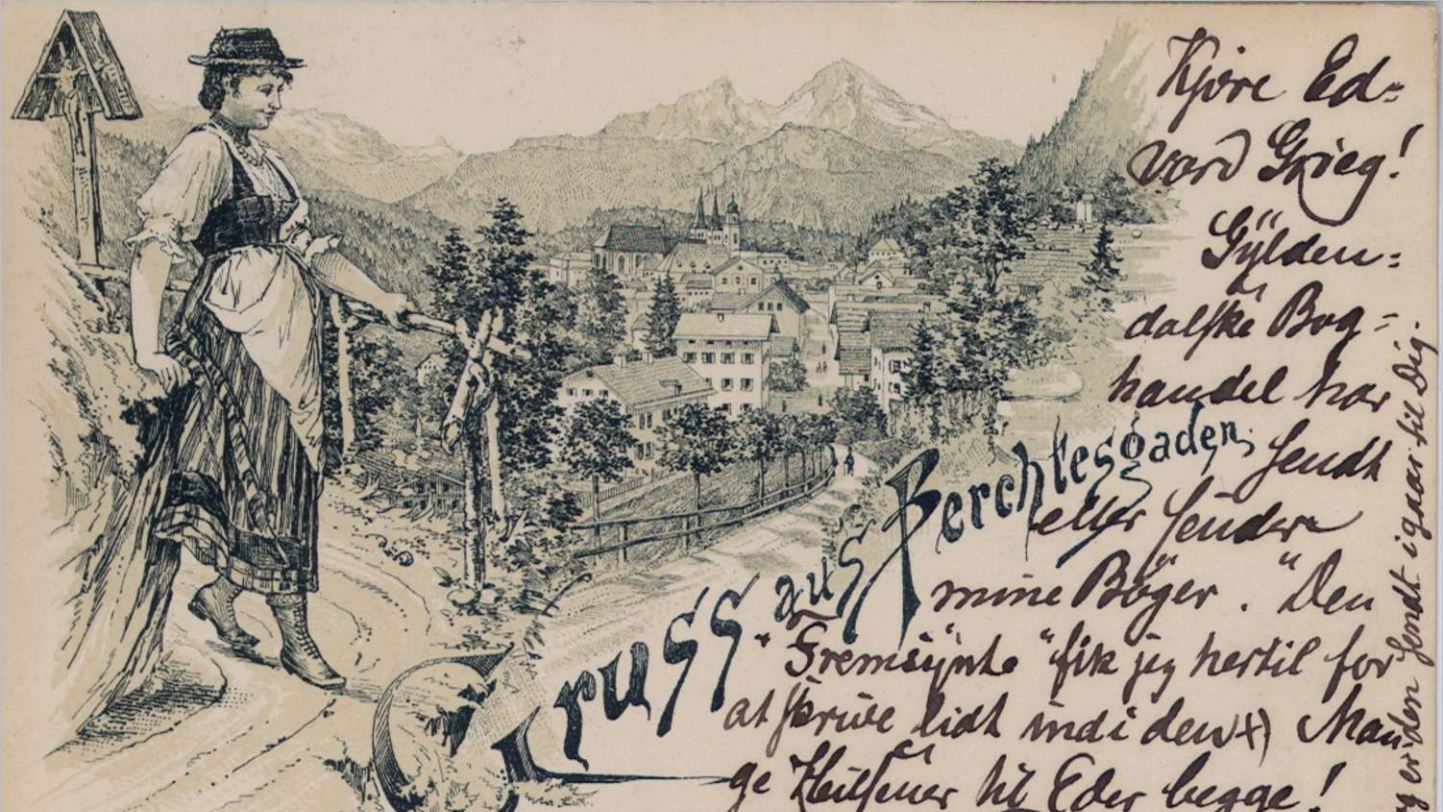 Gruss aus Berchtesgaden.
Kjöre Ed-
vard Grieg!
Gÿlden-
dalske Bog-
handel har
sendt
eller sender
mine Böger. "Den
"Fremsÿnte" fik jeg hertil for
at skrive lidt ind i den x) Man-
ge Hilsener til Eder begge!
er den sendt igaar til Dig.